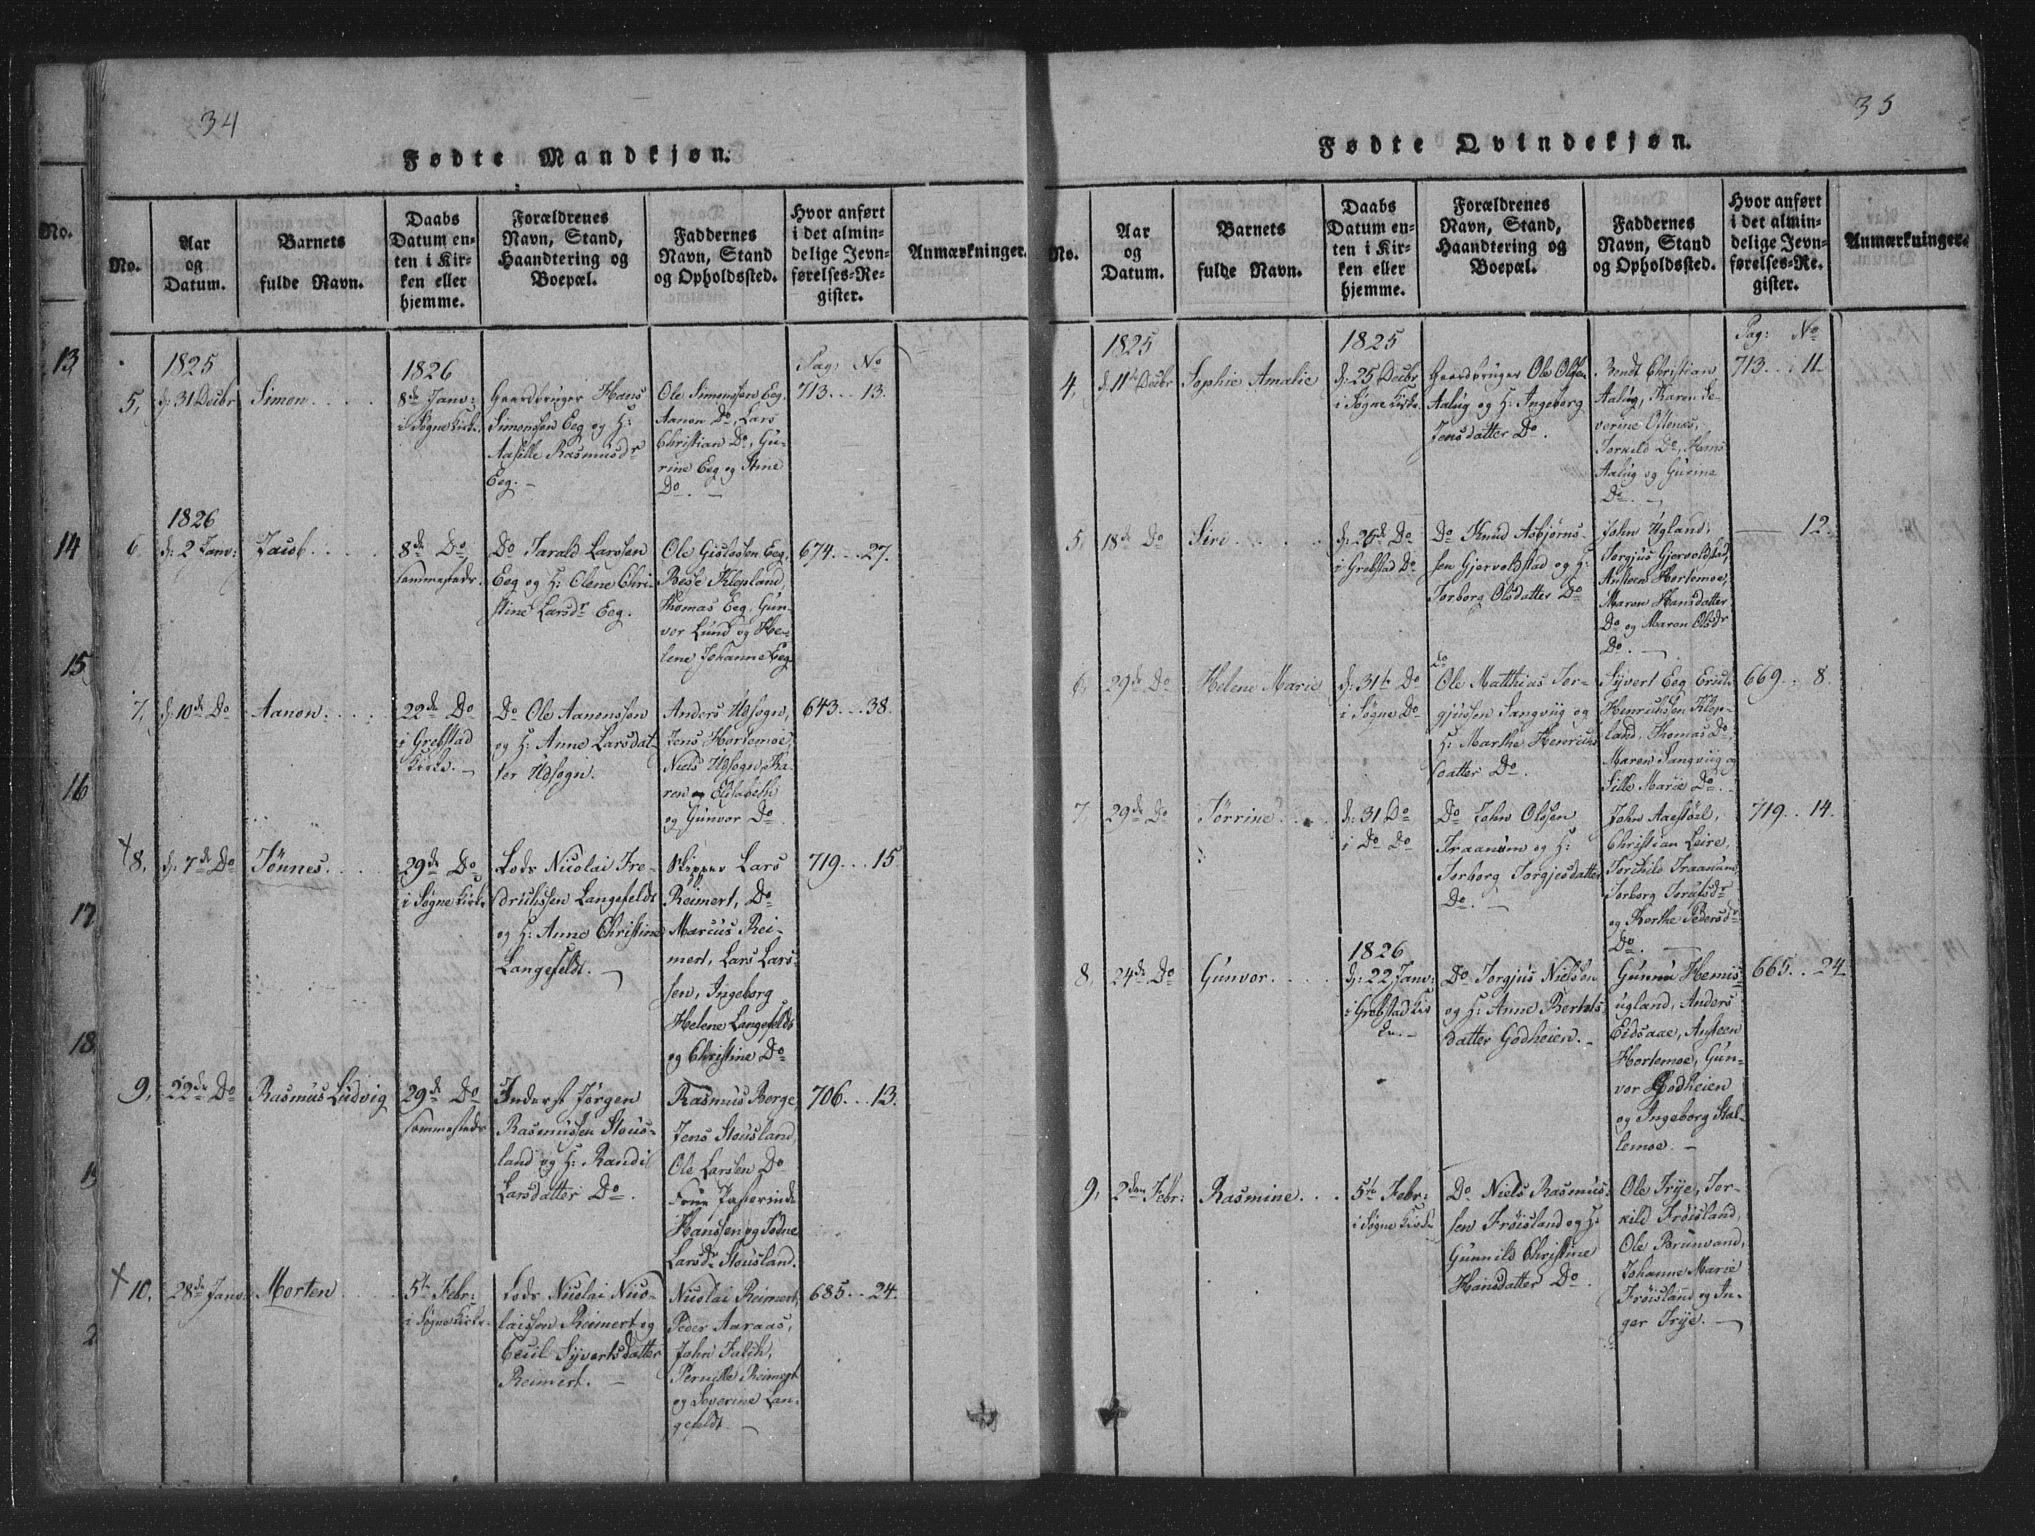 34
Fødte Mandkjøn.
No.
Aar
og
Datum.
Barnets
fulde Navn.
Daabs
Datum en-
ten i Kir-
ken eller
hjemme.
Forældrenes
Navn, Stand,
Haandtering og
Boepæl.
Faddernes
Navn, Stand
og Opholdssted.
Hvor anført
i det almin-
delige Jevn-
førelses-Re-
gister.
Anmærkninger.
Pag: No
1825
5, d: 31 Decbr
Simon
1826
8de Janv:
i Søgne Kirke.
Gaardbruger Hans
Simonsen Eeg og H:
Rasmusdr
Eeg.
Ole Simonssen Eeg,
Aanon Do, Lars
Christian Do, Gu-
rine Eeg og Stine
Do.
713 13.
1826
6, d: 2 Janv:
Jacob
8de Do
sammesteds.
Do Tarald Larssen
Eeg og H: Olene Chri-
stine Larsdr Eeg.
Ole Gislesen Eeg,
Klepland,
Thomas Eeg, Gun-
vor Lund og He-
lene Johanne Eeg.
674 27.
7, d: 10de Do
Aanon
22de Do
i Grebstad
Kirke.
Do Ole Aanonssen
og H: Anne Larsdat-
ter Udsogn.
Anders Udsogn,
Jens Hortemoe,
Niels Udsogn, Ka-
ren og Elisabeth
og Gunvor Do
643 38.
8, d: 7de Do
Tønnes
29de Do
i Søgne Kirke
Lods Nicolai Fre-
drichssen Langefeldt
og H: Anne Christine
Langefeldt.
Skipper Lars
Reimert, Do
Marcus Rei-
mert, Lars Lars-
sen, Ingeborg
Helene Langefeldt
og Christine Do
719 15
9, 22de Do
Rasmus Ludvig
29de Do
sammesteds
Inderst Jørgen
Rasmussen Stous-
land og H: Randi
Larsdatter Do.
Rasmus Berge,
Jens Stousland,
Ole Larsen Do
Hanssen og
Larsdr Stousland.
706 13.
10, 28de Janv:
Morten
5te Febr:
i Søgne Kirke.
Lods Nicolai Nico-
laissen Reimert og
Cecil Syvertsdatter
Reimert.
Nicolai Reimert,
Peder Aaraas,
John Falch,
Pernille Reimert
og Severine Lan-
gefeldt.
685 24.
35
Fødte Qvindekjøn.
No.
Aar
og
Datum.
Barnets
fulde Navn.
Daabs
Datum en-
ten i Kir-
ken eller
hjemme.
Forældrenes
Navn, Stand,
Haandtering og
Boepæl.
Faddernes
Navn, Stand
og Opholdssted.
Hvor anført
i det almin-
delige Jevn-
førelses-Re-
gister.
Anmærkninger.
Pag: No
1825
4, d: 11te Decbr
Sophie Amalie
1825
d: 25 Decbr
i Søgne Kirke.
Gaardbruger Ole Olsen
Aalug og H: Ingeborg
Jensdatter Do.
Bendt Christian
Aalug, Karen Se-
verine Ollenæs,
Torkild Do, Hans
Aalug og Gurine
Do.
713 11.
5, 18de Do
Siri
d: 26de Do
i Grebstad Do
Do Knud Asbjørns-
sen Gjervoldstad og H:
Torborg Olsdatter Do
John Ugland,
Torgjus Gjervoldstad,
Austeen Hortemoe,
Maren Hansdatter
Do og Maren Olsdr
Do.
12.
6, 29de Do
Helene Marie
d: 31te Do
i Søgne Do
Do
Ole Matthias Tor-
gjussen Sangviig og
H: Marthe Henrichs
datter Do.
Syvert Eeg,
Henrichssen Klep-
land, Thomas Do,
Maren Sangviig og
Sille Marie Do.
669 8.
7, 29de Do
Torrine
d: 31 Do
i Do Do
Do John Olsen
Traanum og H:
Torborg Torgjesdatter
Do.
John
Christian Leire,
Torchild Traanum,
Torborg
og Berthe Pedersdr
Do.
719 14.
8, 24de Do
Gunvor
1826
d: 22 Janv:
i Grebstad Kir
ke.
Do Torgjus Nielsen
og H: Anne Bertels-
datter Godheien.
Gunnu Hemis-
ugland, Anders
Eidsaae, Austeen
Hortemoe, Gun-
vor Godheien
og Ingeborg Stal-
lemoe.
665 24
9, 2den Febr:
Rasmine
5te Febr:
i Søgne Kirke
Do Niels Rasmus-
sen Frøisland og H:
Gunnild Christine
Hansdatter Do.
Ole Trye, Tor-
kild Frøisland,
Ole Brunvand,
Johanne Marie
Frøisland og In-
ger Trye.
No.
13
14
15
16
17
18
19
2